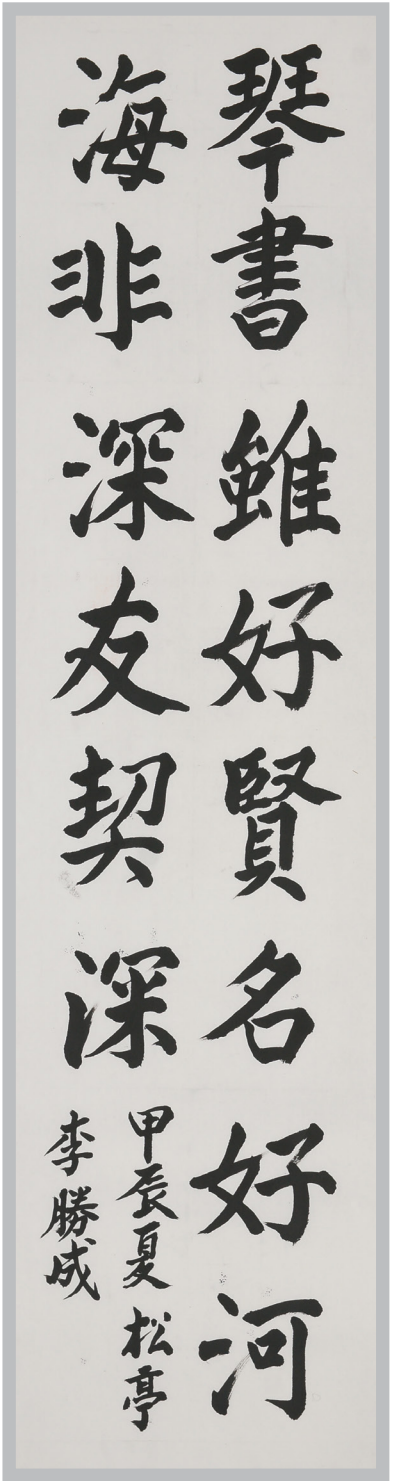 琴書雖好賢名好河
海非深友契深
甲辰夏松亭
李勝成